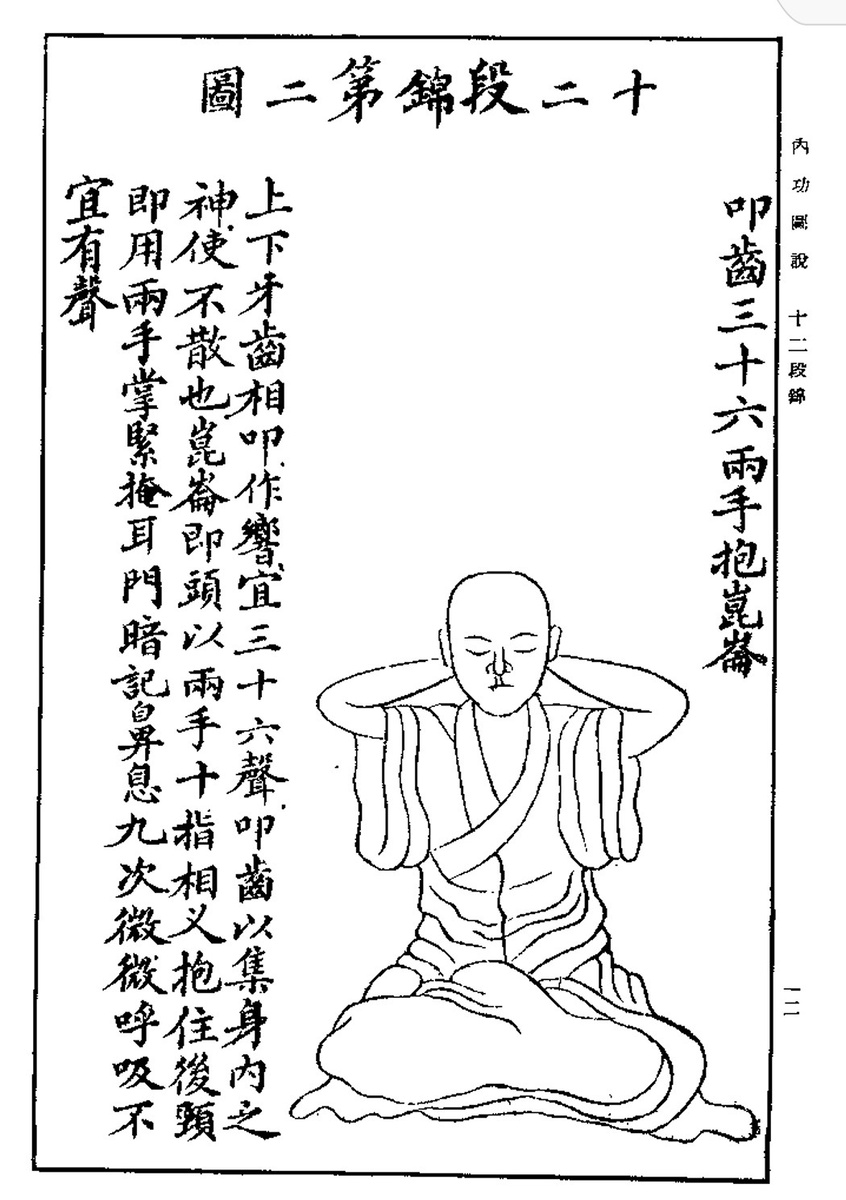 十二段錦第二圖
內功圖說 十二段錦
叩齒三十六兩手抱崑崙
上下牙齒相叩作響宜三十六聲叩齒以集身內之
神使不散也崑崙即頭以兩手十指相义抱住後頸
即用兩手掌緊掩耳門暗記鼻息九次微微呼吸不
宜有聲
一二